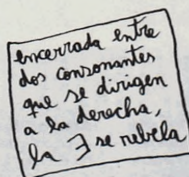 encerrada entre
dos consonantes
que se dirigen
a la derecha,
la Ǝ se rebela